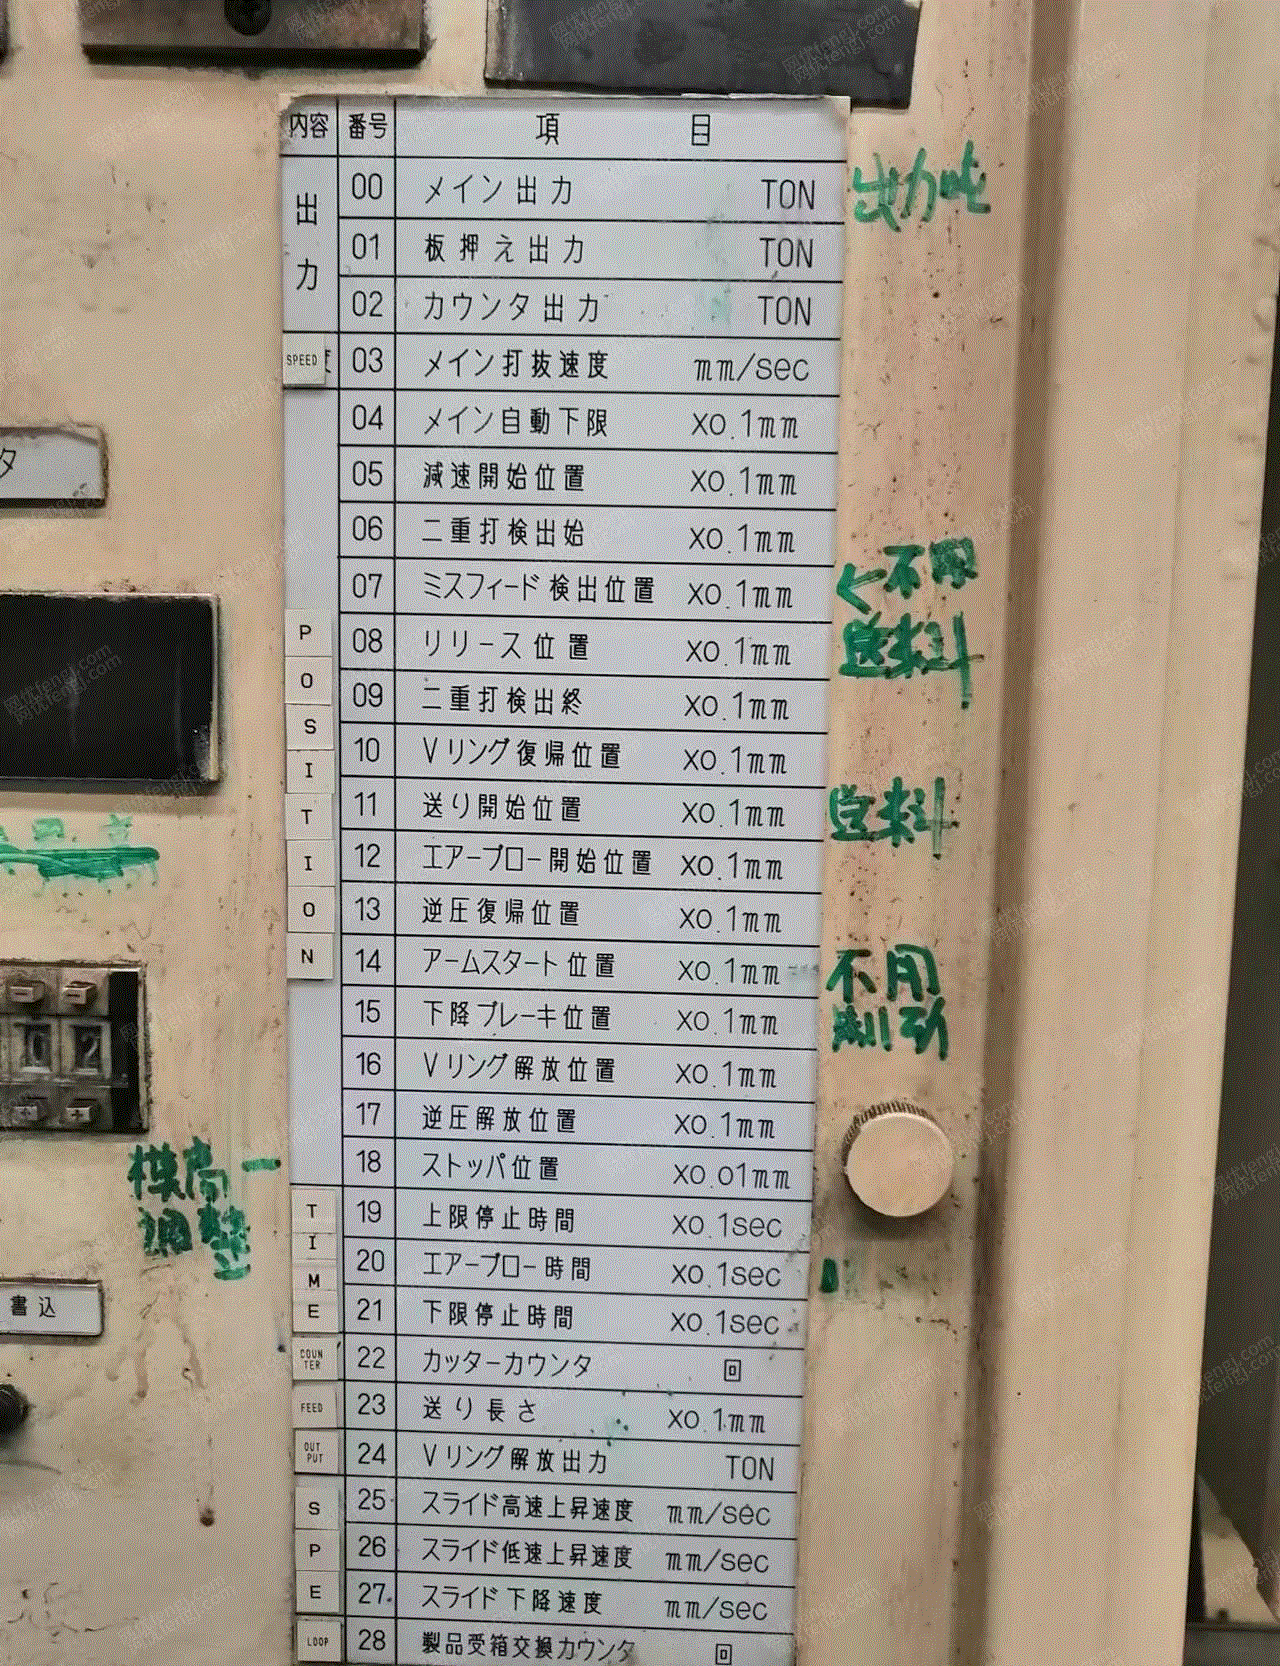 内容 番号 項 目
出力 00 メイン出力 TON
出力吨
01 板押え出力 TON
02 カウンタ出力 TON
SPEED 03 メイン打抜速度 mm/sec
04 メイン自動下限 x0.1mm
タ
05 減速開始位置 x0.1mm
06 二重打検出始 x0.1mm
07 ミスフィード検出位置 x0.1mm
不用
POSITION
08 リリース位置 x0.1mm
送料
09 二重打検出終 x0.1mm
10 Vリング復帰位置 x0.1mm
11 送り開始位置 x0.1mm
送料
12 エアーブロー開始位置 x0.1mm
13 逆圧復帰位置 x0.1mm
14 アームスタート位置 x0.1mm
不用
15 下降ブレーキ位置 x0.1mm
16 Vリング解放位置 x0.1mm
17 逆圧解放位置 x0.1mm
18 ストッパ位置 x0.01mm
模高
调整
TIME
19 上限停止時間 x0.1sec
20 エアーブロー時間 x0.1sec
21 下限停止時間 x0.1sec
書込
COUNTER 22 カッターカウンタ 回
FEED 23 送り長さ x0.1mm
OUTPUT 24 Vリング解放出力 TON
SPE
25 スライド高速上昇速度 mm/sec
26 スライド低速上昇速度 mm/sec
27 スライド下降速度 mm/sec
LOOP 28 製品受箱交換カウンタ 回